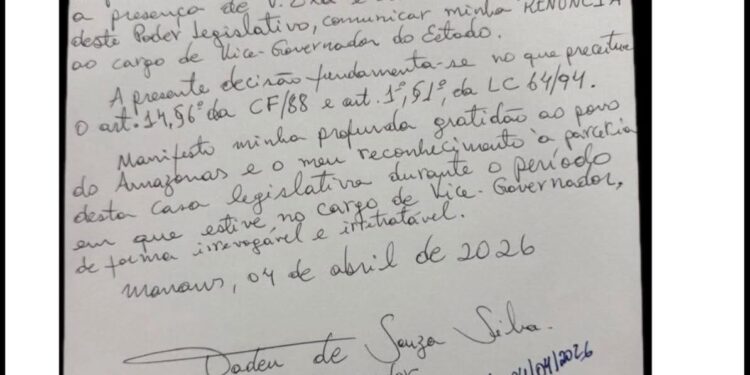 a presença de V. Exa e
deste Poder Legislativo, comunicar minha RENÚNCIA
ao cargo de Vice-Governador do Estado.
A presente decisão fundamenta-se no que preceitua
o art. 14, §6º da CF/88 e art. 1º, §1º, da LC 64/94.
Manifesto minha profunda gratidão ao povo
do Amazonas e o meu reconhecimento à parceria
desta casa legislativa durante o período
em que estive no cargo de Vice-Governador,
de forma irrevogável e irretratável.
Manaus, 04 de abril de 2026
Tadeu de Souza Silva.
04/04/2026